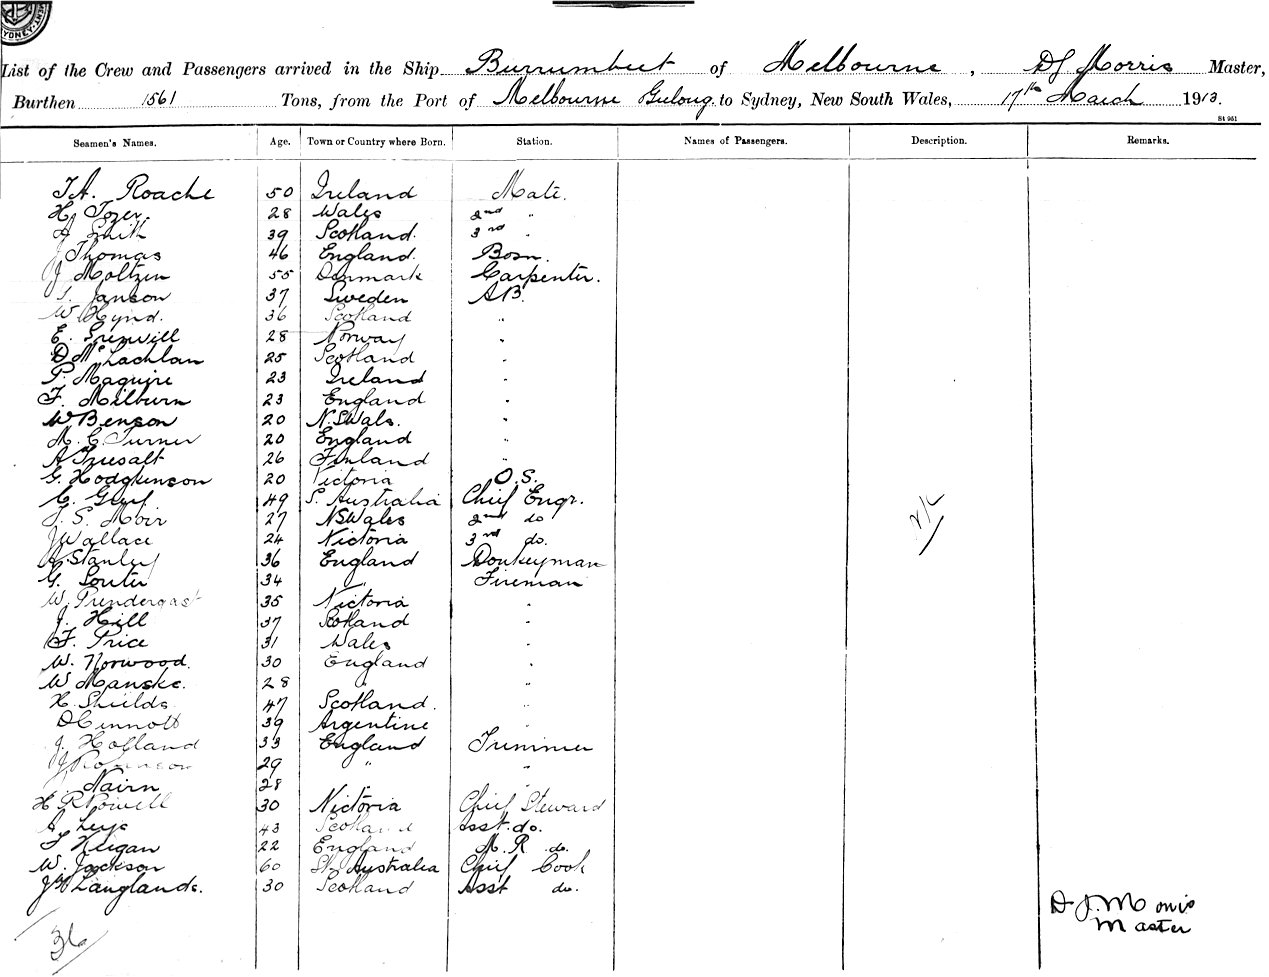 SYDNEY
List of the Crew and Passengers arrived in the Ship Burrumbeet of Melbourne, DJ Morris Master,
Burthen 1561 Tons, from the Port of Melbourne Geelong to Sydney, New South Wales, 17th March 1913.
St 951
Seamen's Names. Age. Town or Country where Born. Station. Names of Passengers. Description. Remarks.
T.A. Roache 50 Ireland Mate.
H. Tozer. 28 Wales 2nd "
Smith 39 Scotland. 3rd "
J Thomas 46 England. Bosn.
J Moltzen 55 Denmark Carpenter.
Janson 37 Sweden AB.
W Hynd. 36 Scotland "
E. 28 Norway "
D McLachlan 25 Scotland "
P. Maguire 23 Ireland "
F. Milburn 23 England "
W Benson 20 N.S Wales. "
M. C. Turner 20 England "
A 26 Finland "
G. Hodgkinson 20 Victoria O.S.
49 S. Australia Chief Engr.
T. S. Moir 27 NSWales 2nd do
J Wallace 24 Victoria 3rd do.
A Stanley 36 England Donkeyman
G. Souter 34 " Fireman
W. Prendergast 35 Victoria "
J. Hill 37 Scotland "
F. Price 31 Wales "
W. Norwood. 30 England "
W Manske. 28 " "
H. Shields 47 Scotland. "
D Sinnott 39 Argentine "
J. Holland 33 England Trimmer
J Robinson 29 " "
Nairn 28 " "
H R Powell 30 Victoria Chief Steward
A. Leys 43 Scotland Asst. do.
Keegan 22 England M. R do.
W. Jackson 60 Sth Australia Chief Cook
Langlands. 30 Scotland Asst do.
D J. Morris
Master
36